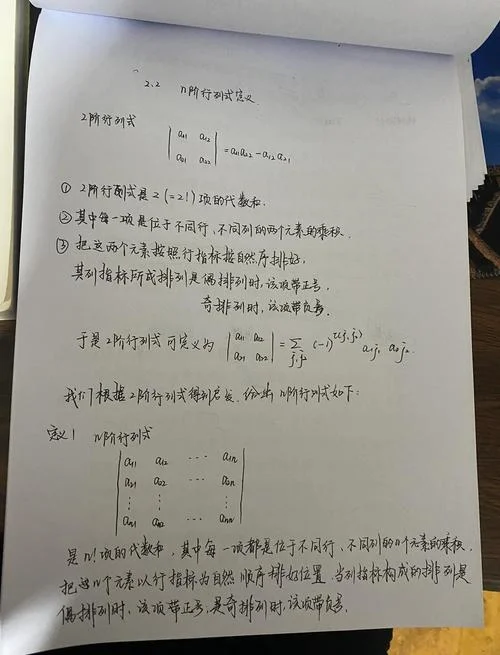 2.2 n阶行列式定义
2阶行列式
| a₁₁ a₁₂ |
| a₂₁ a₂₂ | = a₁₁a₂₂ - a₁₂a₂₁
① 2阶行列式是2(=2!)项的代数和.
② 其中每一项是位于不同行、不同列的两个元素的乘积.
③ 把这两个元素按照行指标按自然序排好,
其列指标所成排列是偶排列时,该项带正号,
奇排列时,该项带负号.
于是2阶行列式可定义为 | a₁₁ a₁₂ |
| a₂₁ a₂₂ | = ∑_{j₁j₂} (-1)^{τ(j₁j₂)} a₁j₁ a₂j₂
我们根据2阶行列式得到启发.给出n阶行列式如下:
定义1 n阶行列式
| a₁₁ a₁₂ ⋯ a₁n |
| a₂₁ a₂₂ ⋯ a₂n |
| ⋮ ⋮ ⋮ |
| an₁ an₂ ⋯ ann |
是n!项的代数和,其中每一项都是位于不同行、不同列的n个元素的乘积.
把这n个元素以行指标为自然顺序排好位置.当列指标构成的排列是
偶排列时,该项带正号,是奇排列时,该项带负号.